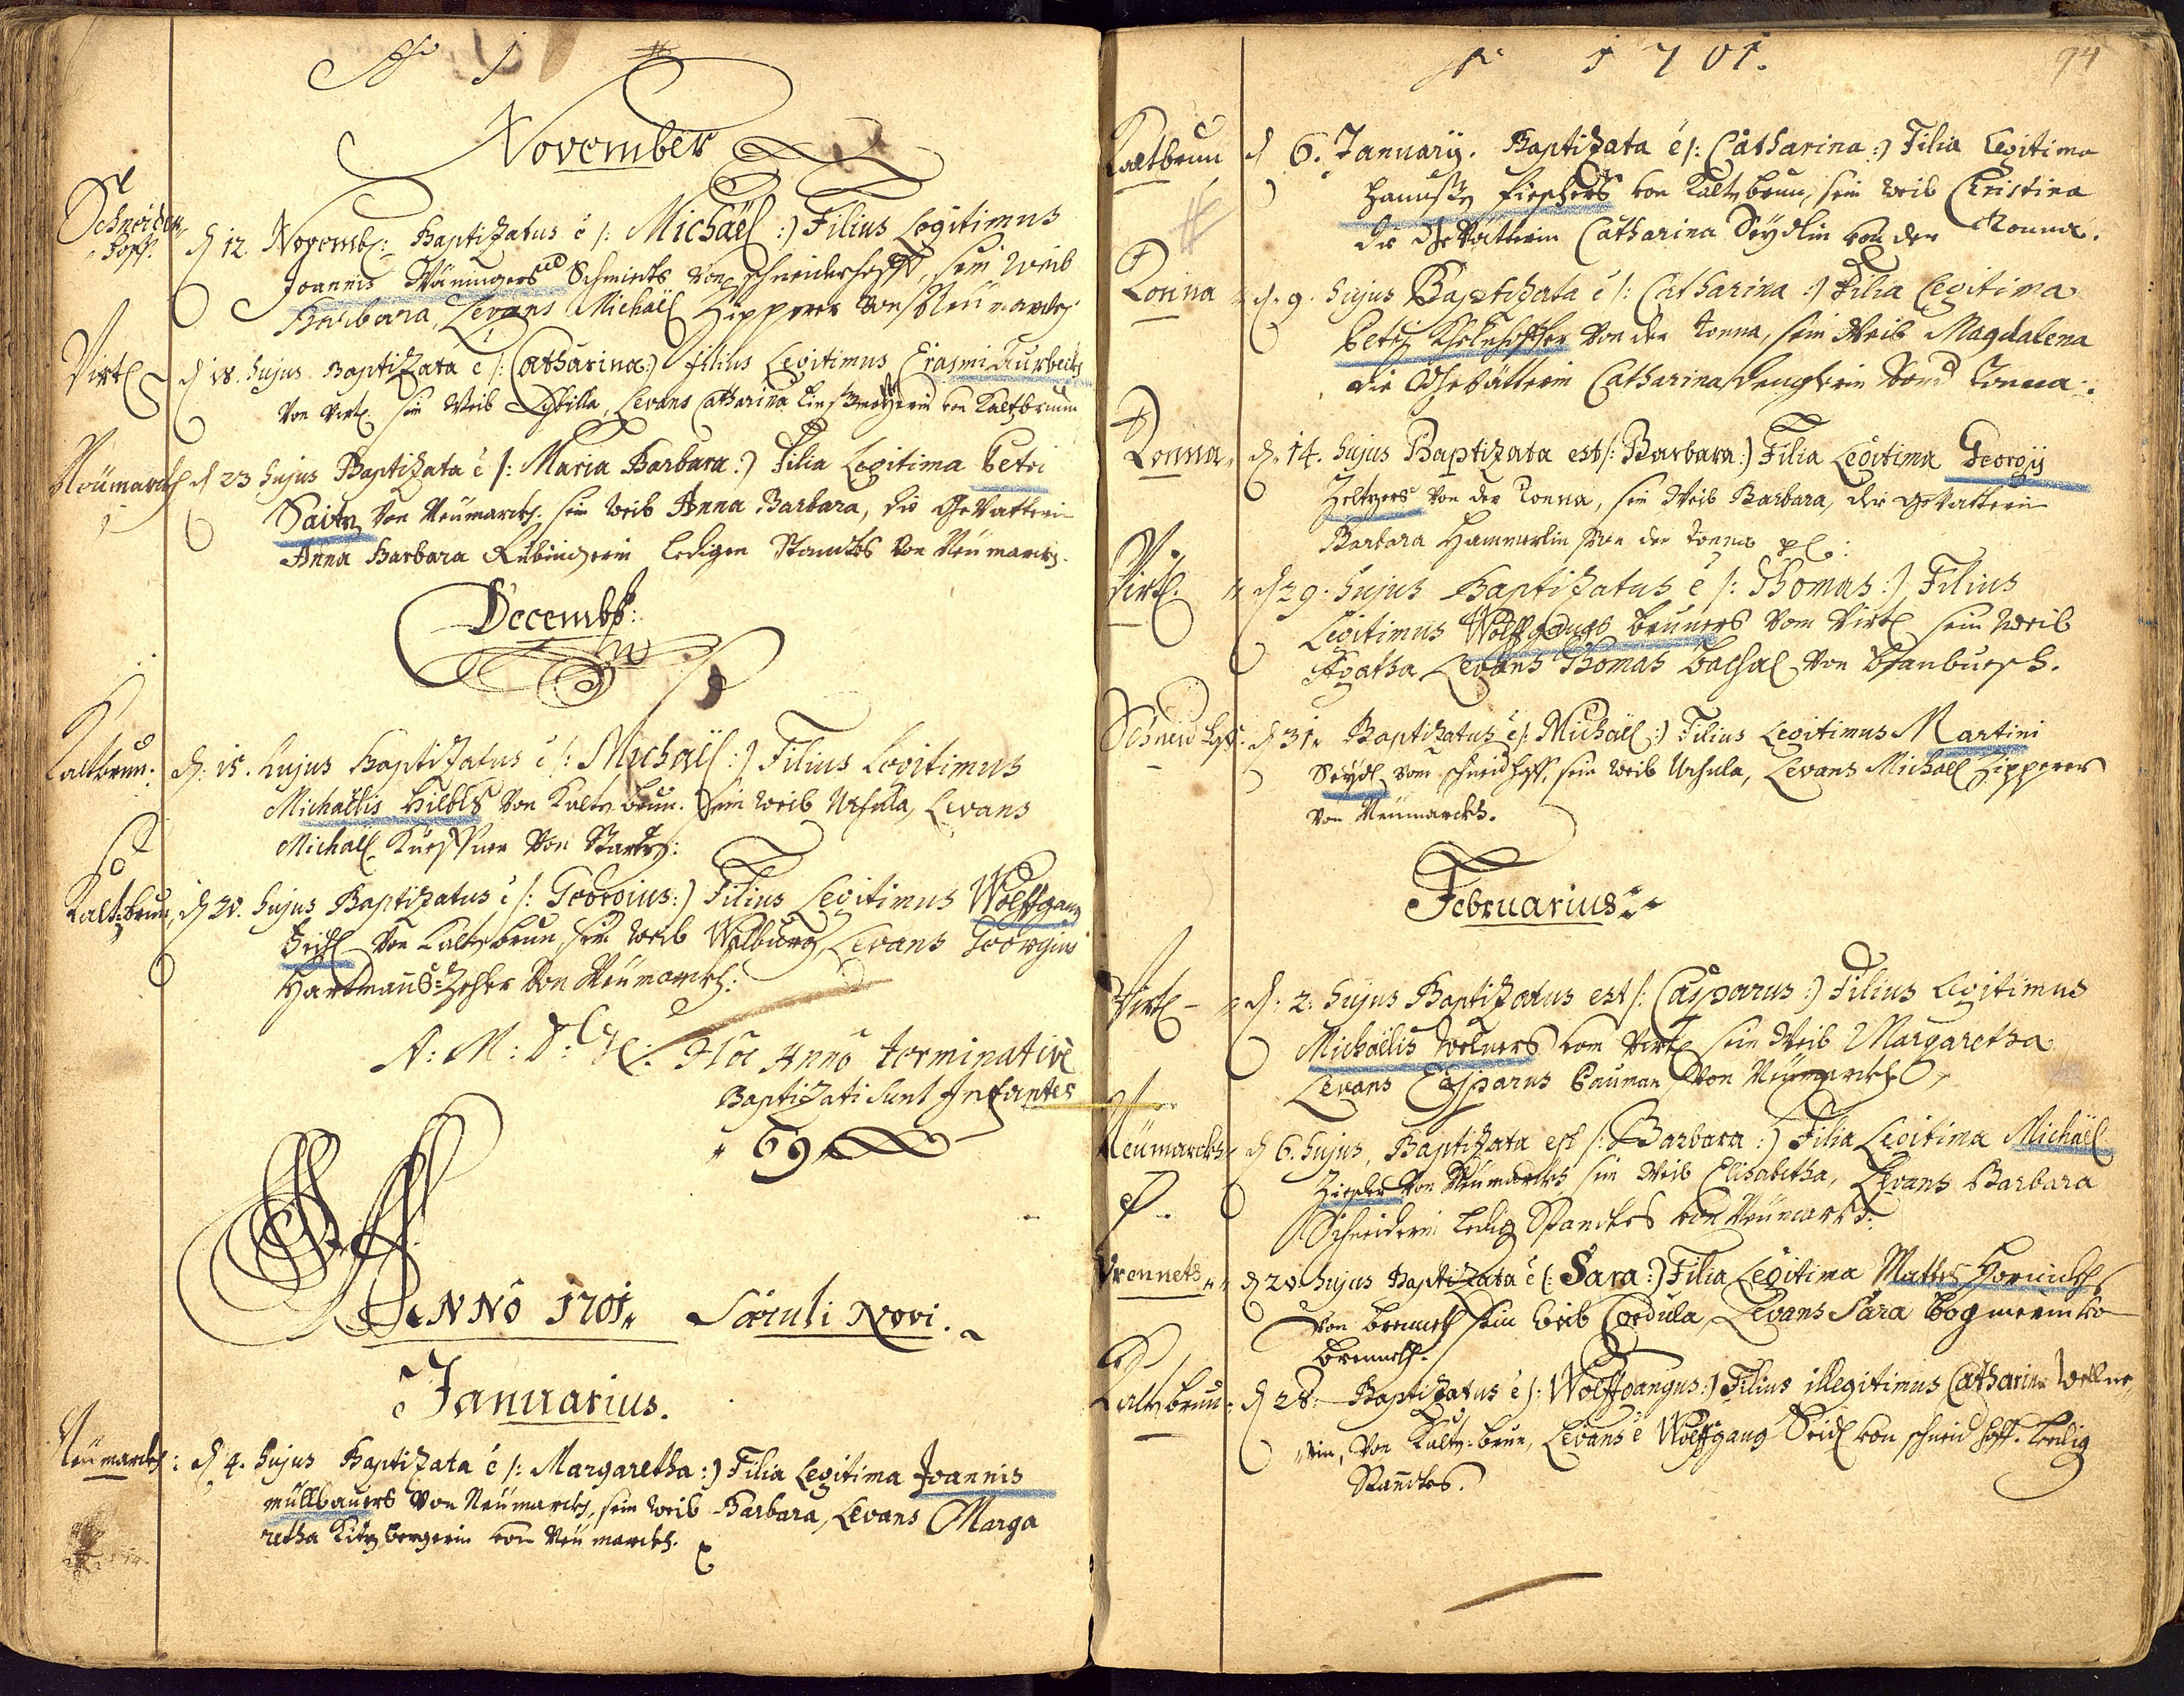 November
Schneider
hoff.
d 12. Novemb: Baptizatus ē /: Michaël :) Filius Legitimus
Joannis Wäningers Schmidts von schneiderhoff, sein Weib
Barbara, Levans Michaël Zipperer von Neumarckh
Virtl
d 18. hujus Baptizata ē /: Catharina :) filius Legitimus Erasmi Aurbecks
von Virtl sein Weib Sybilla, Levans Catharina von Kaltbrunn
Neümarckh
d 23 hujus Baptizata ē /: Maria Barbara :) Filia Legitima Petri
Saitz von Neümarckh sein Weib Anna Barbara, die Gevatterin
Anna Barbara Rubingerin ledigen Standts von Neumarckh.
Decembr:
Kaltbrun.
d: 15. hujus Baptizatus ē /: Michaël :) Filius Legitimus
Michaëlis Hilbls von Kaltzbrun. sein Weib Ursula, Levans
Michaël Kürschner von
Kaltzbrun
d 20. hujus Baptizatus ē /: Georgius :) Filius Legitimus Wolffgang
von Kaltzbrun, sein Weib Walburg, Levans Georgius
Hartmans von Neumarckh:
A: M: D: G: Hoc Anno terminative
Baptizati sunt Infantes
69
ANNO 1701 Sæculi Novi.
Januarius.
Neümarckh:
d 4. hujus Baptizata ē /: Margaretha :) Filia Legitima Joannis
müllbauers von Neümarckh, sein Weib Barbara, Levans Marga
retha Kitzbergerin von Neümarckh.
A 1701.
94
Kaltbrun
d 6. Januarij. Baptizata ē /: Catharina :) Filia Legitima
Hannsen Fischers von Kaltzbrun, sein Weib Christina
die Gevätterin Catharina Seydlin von der Tonna.
Tonna
d. 9. hujus Baptizata ē /: Catharina :) Filia Legitima
Petri von der Tonna, sein Weib Magdalena
die Gevätterin Catharina von der Tonna.
Tonna
d. 14. hujus Baptizata est /: Barbara :) Filia Legitima Georgij
von der Tonna, sein Weib Barbara, die Gevatterin
Barbara Hammerlin von der Tonna
Virtl.
d 29. hujus Baptizatus ē /: Thomas :) Filius
Legitimus Wolffgangs Bruners vom Virtl sein Weib
Agatha Levans Thomas Bachal von
Schneidhoff.
d 31. Baptizatus ē /: Michaël :) Filius Legitimus Martini
Seydl vom schneidhoff, sein Weib Ursula, Levans Michaël Zipperer
von Neumarckh.
Februarius
Virtl
d: 2. hujus Baptizatus est /: Casparus :) Filius Legitimus
Michaëlis Welners vom Virtl sein Weib Margaretha
Levans Casparus Pauman von Neumarckh
Neümarckh
d 6. hujus, Baptizata est /: Barbara :) Filia Legitima Michaël
von Neumarckh sein Weib Elisabetha, Levans Barbara
Schneiderin ledig Standtes von Neumarckh.
Brennets
d 20. hujus Baptizata ē (: Sara :) Filia Legitima Mattes Hornickh
von Brenneth sein Weib Cordula, Levans Sara Bogmerin von
Brenneth.
Kaltzbrun
d 28. Baptizatus ē /: Wolffgangus :) Filius illegitimus Catharina Wellne
rin, von Kaltz-brun, Levans ē Wolffgang Seidl von schneid hoff. ledig
Standtes.